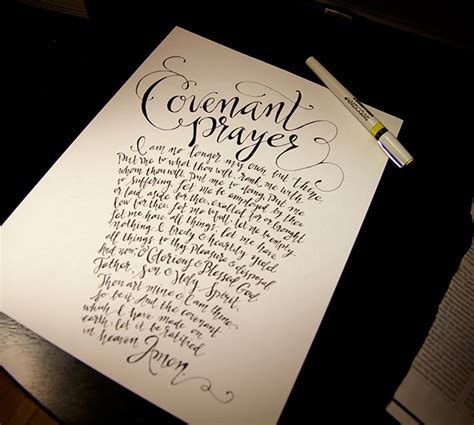 Covenant
Prayer
I am no longer my own but thine.
Put me to what thou wilt, rank me with
whom thou wilt. Put me to doing, put me
to suffering. Let me be employed by thee
or laid aside for thee, exalted for or brought
low for thee. Let me be full, let me be empty.
Let me have all things, let me have
nothing. I freely & heartily yield
all things to thy pleasure & disposal.
And now, O Glorious & Blessed God,
Father, Son & Holy Spirit,
Thou art mine & I am thine.
So be it. And the covenant
which I have made on
earth, let it be ratified
in heaven. Amen.